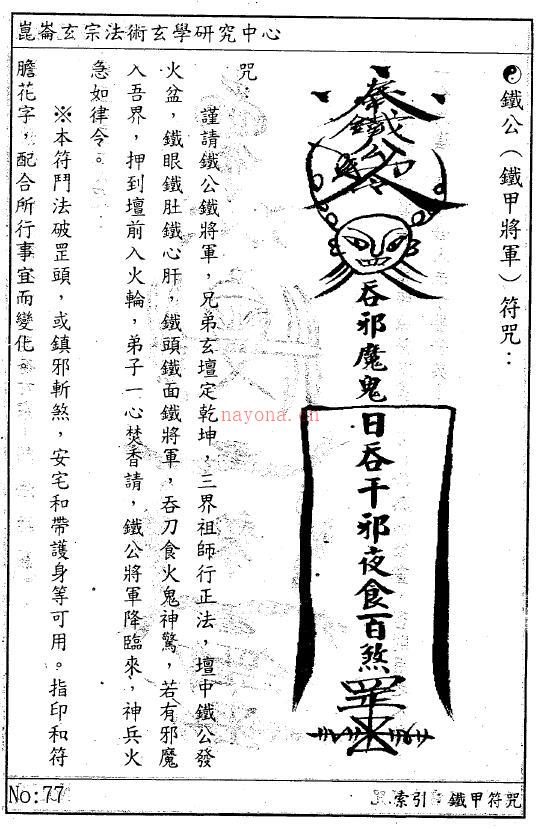 崑崙玄宗法術玄學研究中心
☯鐵公(鐵甲將軍)符咒:
奉
鐵公
吞邪魔鬼
日吞千邪夜食百煞
罡
咒:
謹請鐵公鐵將軍,兄弟玄壇定乾坤,三界祖師行正法,壇中鐵公發
火盆,鐵眼鐵肚鐵心肝,鐵頭鐵面鐵將軍,吞刀食火鬼神驚,若有邪魔
入吾界,押到壇前入火輪,弟子一心焚香請,鐵公將軍降臨來,神兵火
急如律令。
※本符鬥法破罡頭,或鎮邪斬煞,安宅和帶護身等可用。指印和符
膽花字,配合所行事宜而變化。
nayona.cn
No:77
索引:鐵甲符咒